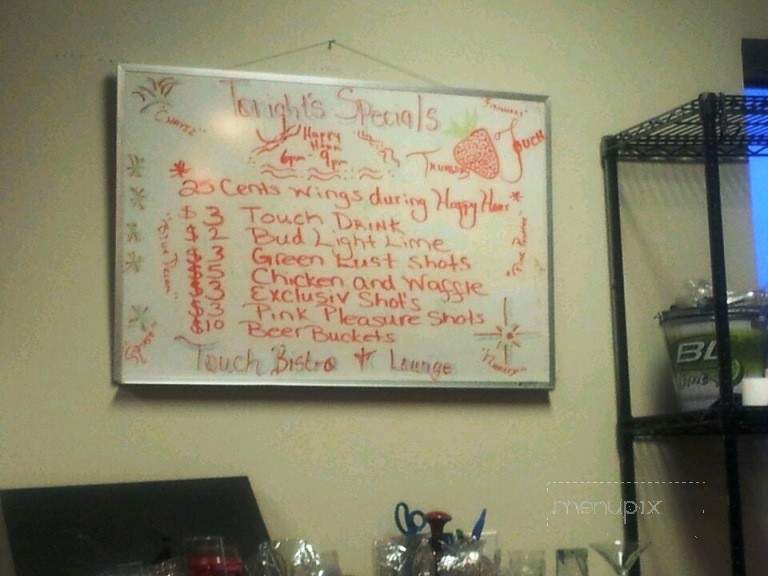 Tonight's Specials
Happy
Hour
6pm - 9pm
Touch
25 Cents Wings during Happy Hour
$ 3 Touch DRINK
$ 2 Bud Light Lime
$ 3 Green Lust Shots
$ 5 Chicken and Waffle
$ 3 Exclusiv Shots
$ 3 Pink Pleasure Shots
$ 10 Beer Buckets
Touch Bistro & Lounge
BL
menupix